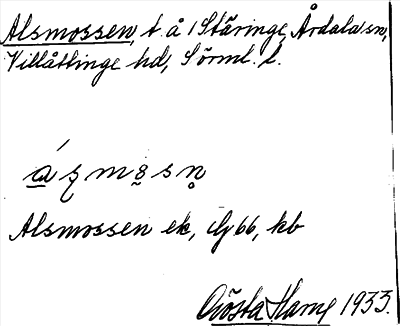 Alsmossen, t. å i Stäringe, Årdala sn,
Villåttinge hd, Sörml. l.
Alsmossen ek, 66, kb
Gösta Hamp 1933.